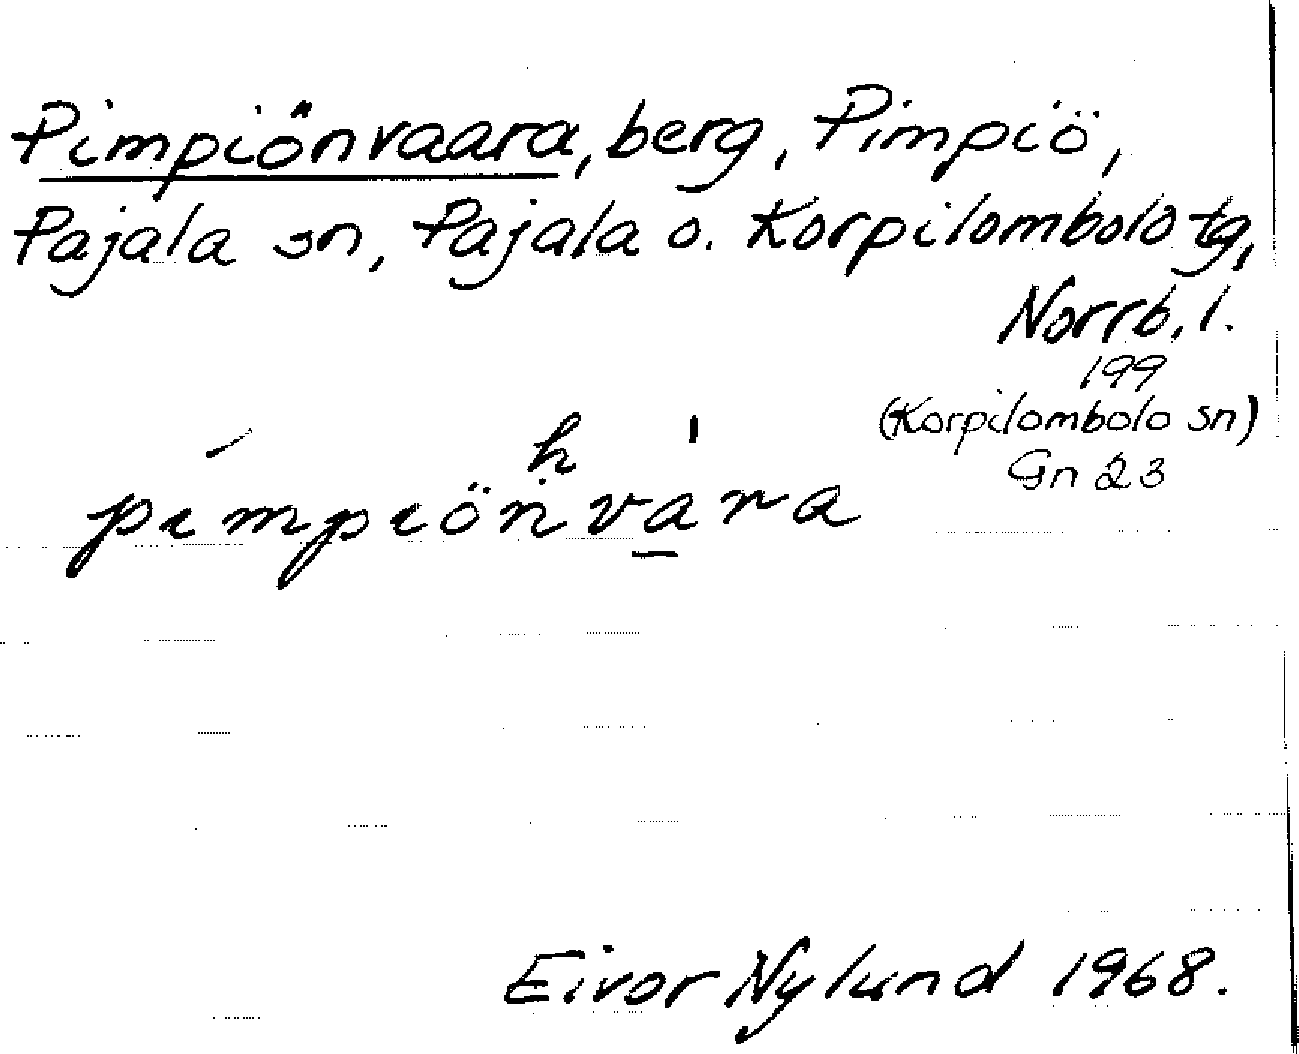 Pimpiönvaara, berg, Pimpiö,
Pajala sn, Pajala o. Korpilombolo tg,
Norrb. l.
199
(Korpilombolo sn)
Gn 23
h
pimpiönvara
Eivor Nylund 1968.